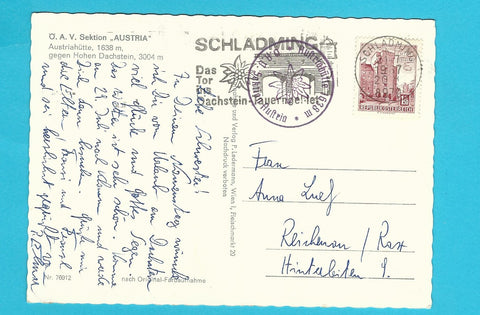 Ö. A. V. Sektion „AUSTRIA"
Austriahütte, 1638 m,
gegen Hohen Dachstein, 3004 m
SCHLADMING
Das
Tor
Dachstein-Tauerngebiet
SCHLADMING
REPUBLIK ÖSTERREICH
Liebe Schwester!
Zu Deinem Namenstag wünsche
ich Dir vom Urlaub am Dachstein
viel Glück und Gottes Segen.
Das Wetter ist sehr schön. Komme
am 29. Juli nach Hause und werde
Dich dann besuchen. Grüße mir
die Eltern, Franz und
und sei herzlichst gegrüßt von
Nr. 76912
nach Original-Farbaufnahme
und Verlag P. Ledermann, Wien I, Fleischmarkt 20
Nachdruck verboten
Frau
Anna
Reichenau / Rax
Hinterleiten 9.